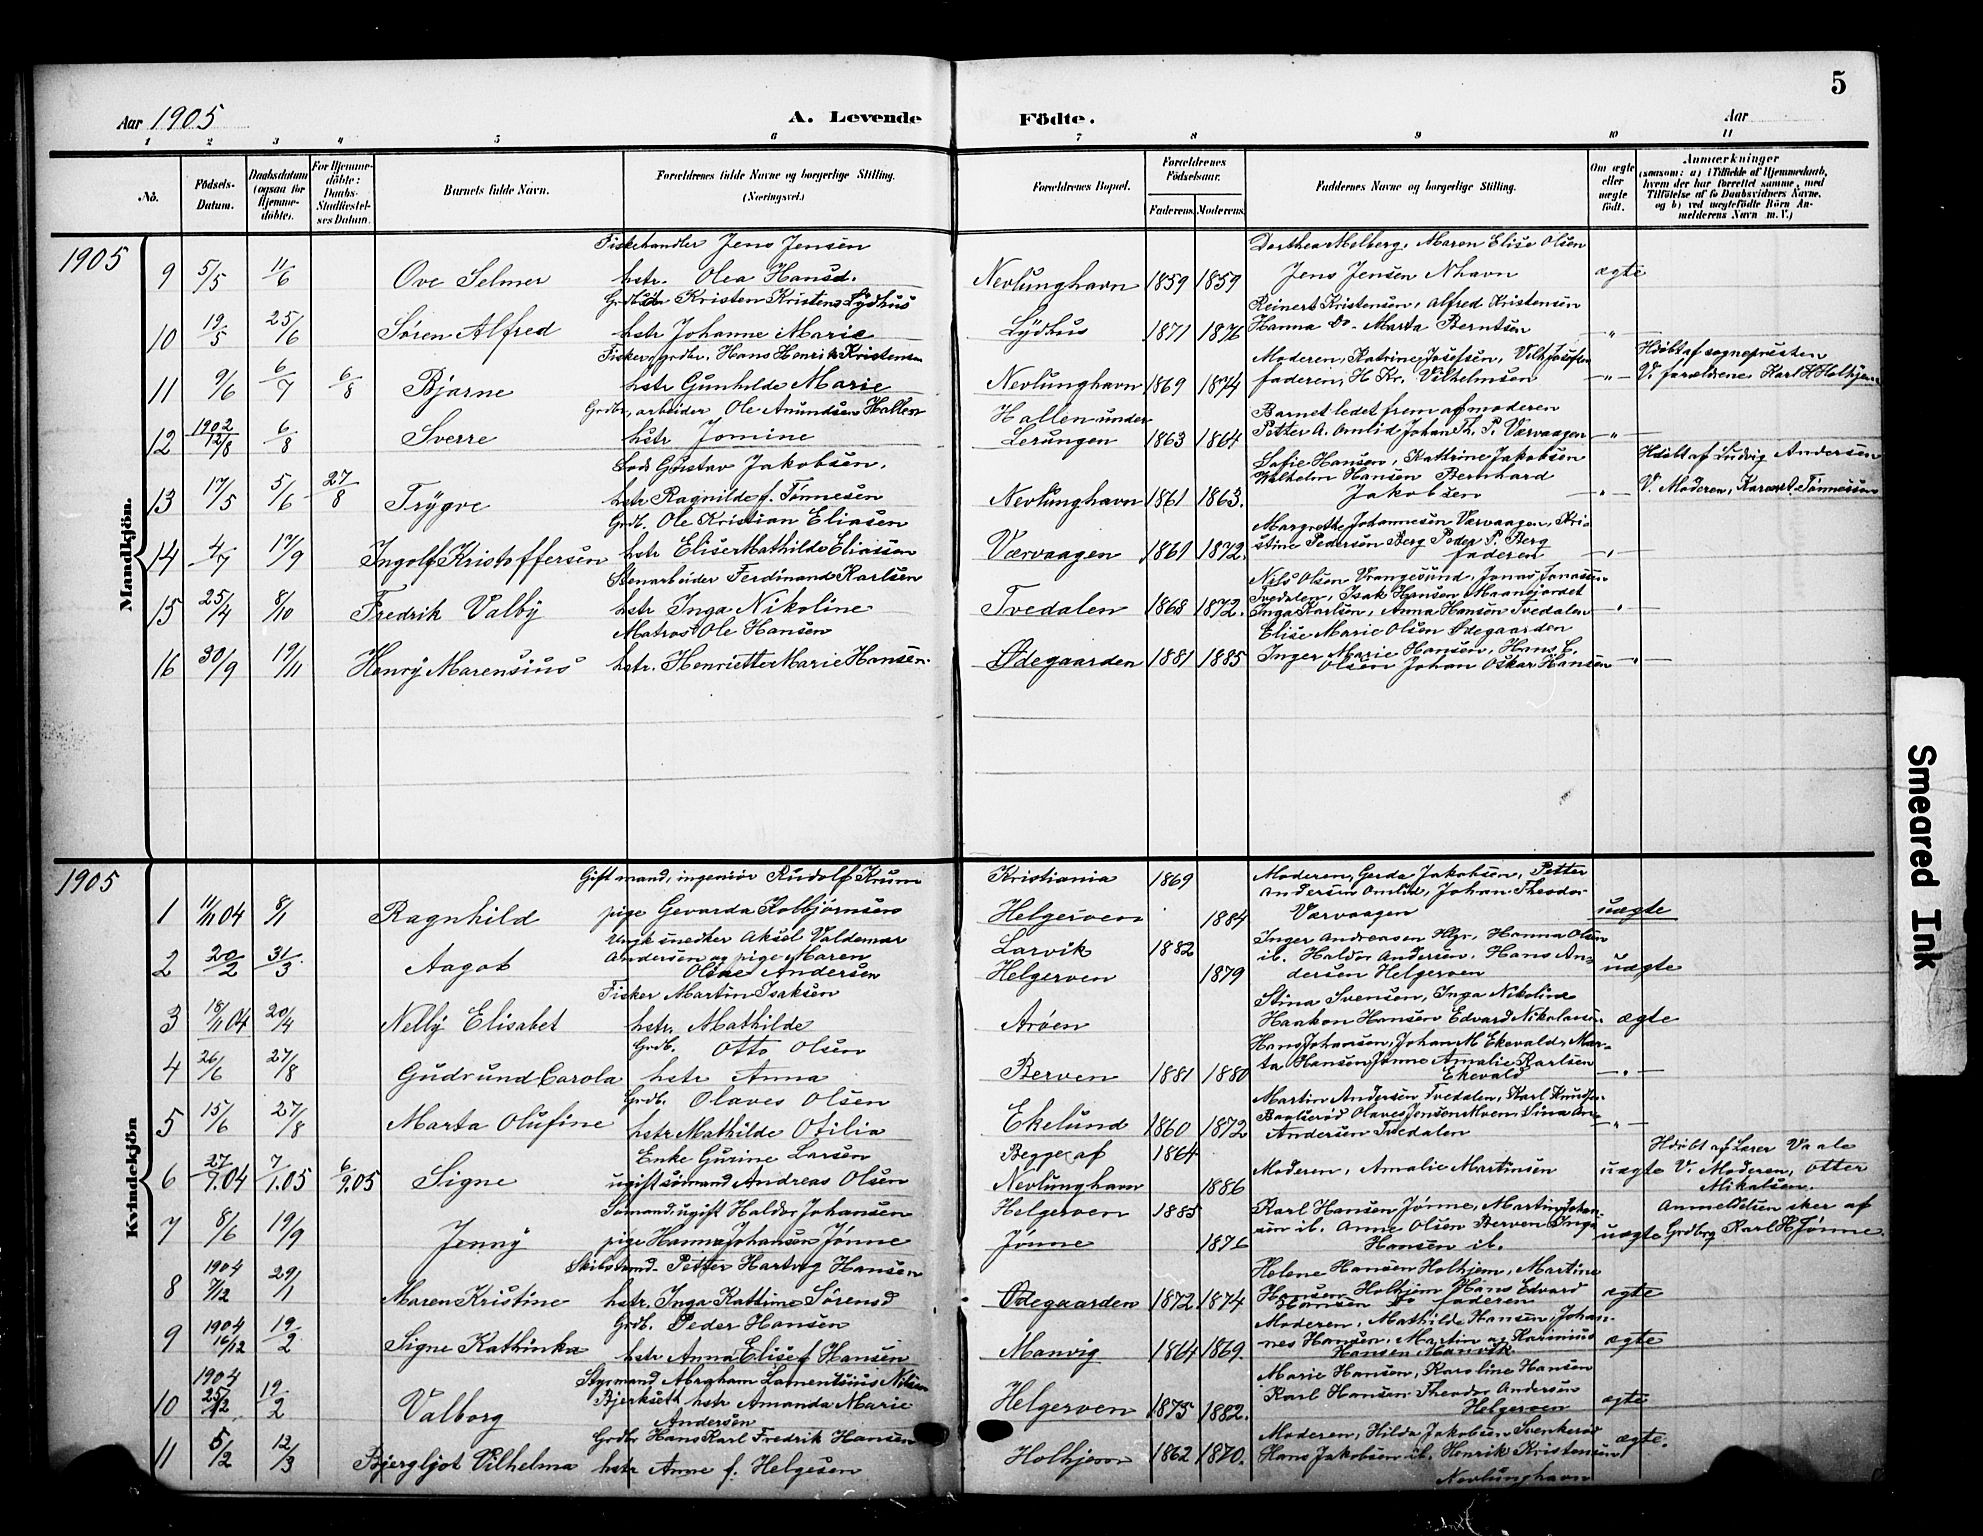 5
Aar 1905 A. Levende Födte. Aar
1 2 3 4 5 6 7 8 9 10 11
No. Födsels-Datum. Daabsdatum (ogsaa for Hjemme-döbte). For Hjemme-döbte: Daabs-Stadfæstel-ses Datum. Barnets fulde Navn. Forældrenes fulde Navne og borgerlige Stilling. (Næringsvei.) Forældrenes Bopæl. Forældrenes Födselsaar. Faderens. Moderens. Faddernes Navne og borgerlige Stilling. Om ægte eller uægte födt. Anmærkninger (saasom: a) i Tilfælde af Hjemmedaab, hvem der har forrettet samme, med Tilföielse af to Daabsvidners Navne, og b) ved uægtefödte Börn Anmelderens Navn m. V.)
1905
Mandkjön.
Fiskehandler Jens Jensen Dorthea Melberg, Maren Elise Olsen
9 5/5 11/6 Ove Selmer hstr. Olea Hansd. Nevlunghavn 1859 1859 Jens Jensen Nhavn ægte
Kristen Kristens Lydhus Reinert Kristensen, Alfred Kristensen
10 19/5 25/6 Søren Alfred hstr Johanne Marie Lydhus 1871 1876 Hanna Do- Marta Berntsen —"—
Fisker, grdbr. Hans Henrik Kristensen Moderen, Katrine Josefsen, Vilh Josefsen Hdøbt af sognepresten
11 9/6 6/7 6/8 Bjarne hstr Gunhilde Marie Nevlunghavn 1869 1874 faderen, H Kr. Vilhelmsen —"— V. forældrene Karl H Holhjem
Grdbr, arbeider Ole Amundsen Hallen Hallen under Barnet ledet frem af moderen
12 1902 12/8 6/8 Sverre hstr Jomine Lerungen 1863 1864 Petter A. Omlid Johan Th. P. Værvaagen —"—
Lods Gustav Jakobsen. Sofie Hansen, Kathrine Jakobsen Hdøbt af Ludvig Andersen
13 17/5 5/6 27/8 Trygve hstr Ragnilde f. Tønnesen Nevlunghavn 1861 1863. Wilhelm Hansen Bernhard Jakobsen —"— V. Moderen, Karen D. Tønnessen
Grdb. Ole Kristian Eliasen Margrethe Johannesen Værvaagen, Kri-
14 4/7 17/9 Ingolf Kristoffersen hstr Elise Mathilde Eliassen Værvaagen 1861 1872. stine Pedersen Berg Peder P. Berg faderen —"—
Stenarbeider Ferdinand Karlsen Nils Olsen Vrangesund, Jonas Jonassen
15 25/4 8/10 Fredrik Valby hstr Inga Nikoline Tvedalen 1868 1872. Tvedalen, Isak Hansen Maanejordet Inga Karlsen, Anna Hansen Tvedalen —"—
Matros Ole Hansen Elise Marie Olsen Ødegaarden
16 30/9 19/11 Henry Marensius hstr. Henriette Marie Hansen. Ødegaarden 1881 1885 Inger Marie Hansen, Hans E. Olsen Johan Oskar Hansen —"—
1905
Kvindekjön
Gift mand, ingeniør Rudolf Krum Kristiania 1869 Moderen, Gerda Jakobsen, Petter
1 11/11 04 8/1 Ragnhild pige Gevarda Kolbjørnsen Helgerven 1884 Andersen Omlid, Johan Theodor Værvaagen uægte
Ungk snedker Aksel Valdemar Larvik 1882 Inger Andreasen Hlgr, Hanna Olsen
2 20/2 31/3 Aagot Andersen og pige Maren Olsine Andersen Helgerven 1879 ib. Haldor Andersen, Hans Andersen Helgerven uægte
Fisker Martin Isaksen Stina Svensen, Inga Nikoline
3 18/11 04 20/4 Nelly Elisabet hstr. Mathilde Arøen Haakon Hansen Edvard Nikolaisen. ægte
Grdb. Otto Olsen Hans Johansen, Johan M Ekevald, Mar-
4 26/6 27/8 Gudrund Carola hstr Anna Berven 1881 1880 ta Hansen Jønne Amalie Karlsen Ekevald —"—
Grdb. Olaves Olsen Martin Andersen Tvedalen, Karl Knudsen
5 15/6 27/8 Marta Olufine hstr Mathilde Otilia Ekelund 1860 1872 Olaves Jensen Andersen Tvedalen —"—
Enke Gurine Larsen Begge af 1864 Hdøbt af Lærer Vaale
6 27/9.04 7/1.05 6/9.05 Signe ugift sømand Andreas Olsen Nevlunghavn 1886 Moderen, Amalie Martinsen uægte V. Moderen, Otter Mikalsen.
Sømand, ugift Haldor Johansen Helgerven 1885 Karl Hansen Jønne, Martin Johan- Anmeldelsen sker af
7 8/6 19/9 Jenny pige Hanna Johansen Jønne Jønne 1876 sen ib. Anne Olsen Berven Inga Hansen ib. uægte Grdbrg Karl H Jønne.
Skibstømd. Petter Hartvig Hansen Helene Hansen Holhjem, Martine
8 1904 7/12 29/1 Maren Kristine hstr. Inga Katrine Sørensd Ødegaarden 1872 1874 Hansen Holhjem Hans Edvard Hansen Do faderen ægte
Grdb. Peder Hansen Moderen, Mathilde Hansen, Johan-
9 1904 16/12 19/2 Signe Kathinka hstr Anna Elise f Hansen Manvig 1864 1869. nes Hansen, Martin og Karinius Hansen, Manvik ægte
Styrmand Abraham Lamentsius Nilsen Marie Hansen, Karoline Hansen
10 1904 25/12 19/2 Valborg Bjerkseth hstr Amanda Marie Andersen Helgerven 1875 1882. Karl Hansen Theodor Andersen Helgerven ægte
Grdbr Hans Karl Fredrik Hansen Moderen, Hilda Jakobsen Svenkerød
11 5/2 12/3 Bjergljot Vilhelma hstr Anne f. Helgesen Holhjem 1862 1870. Hans Jakobsen ib. Henrik Kristensen Nevlunghavn ægte.
Smeared Ink